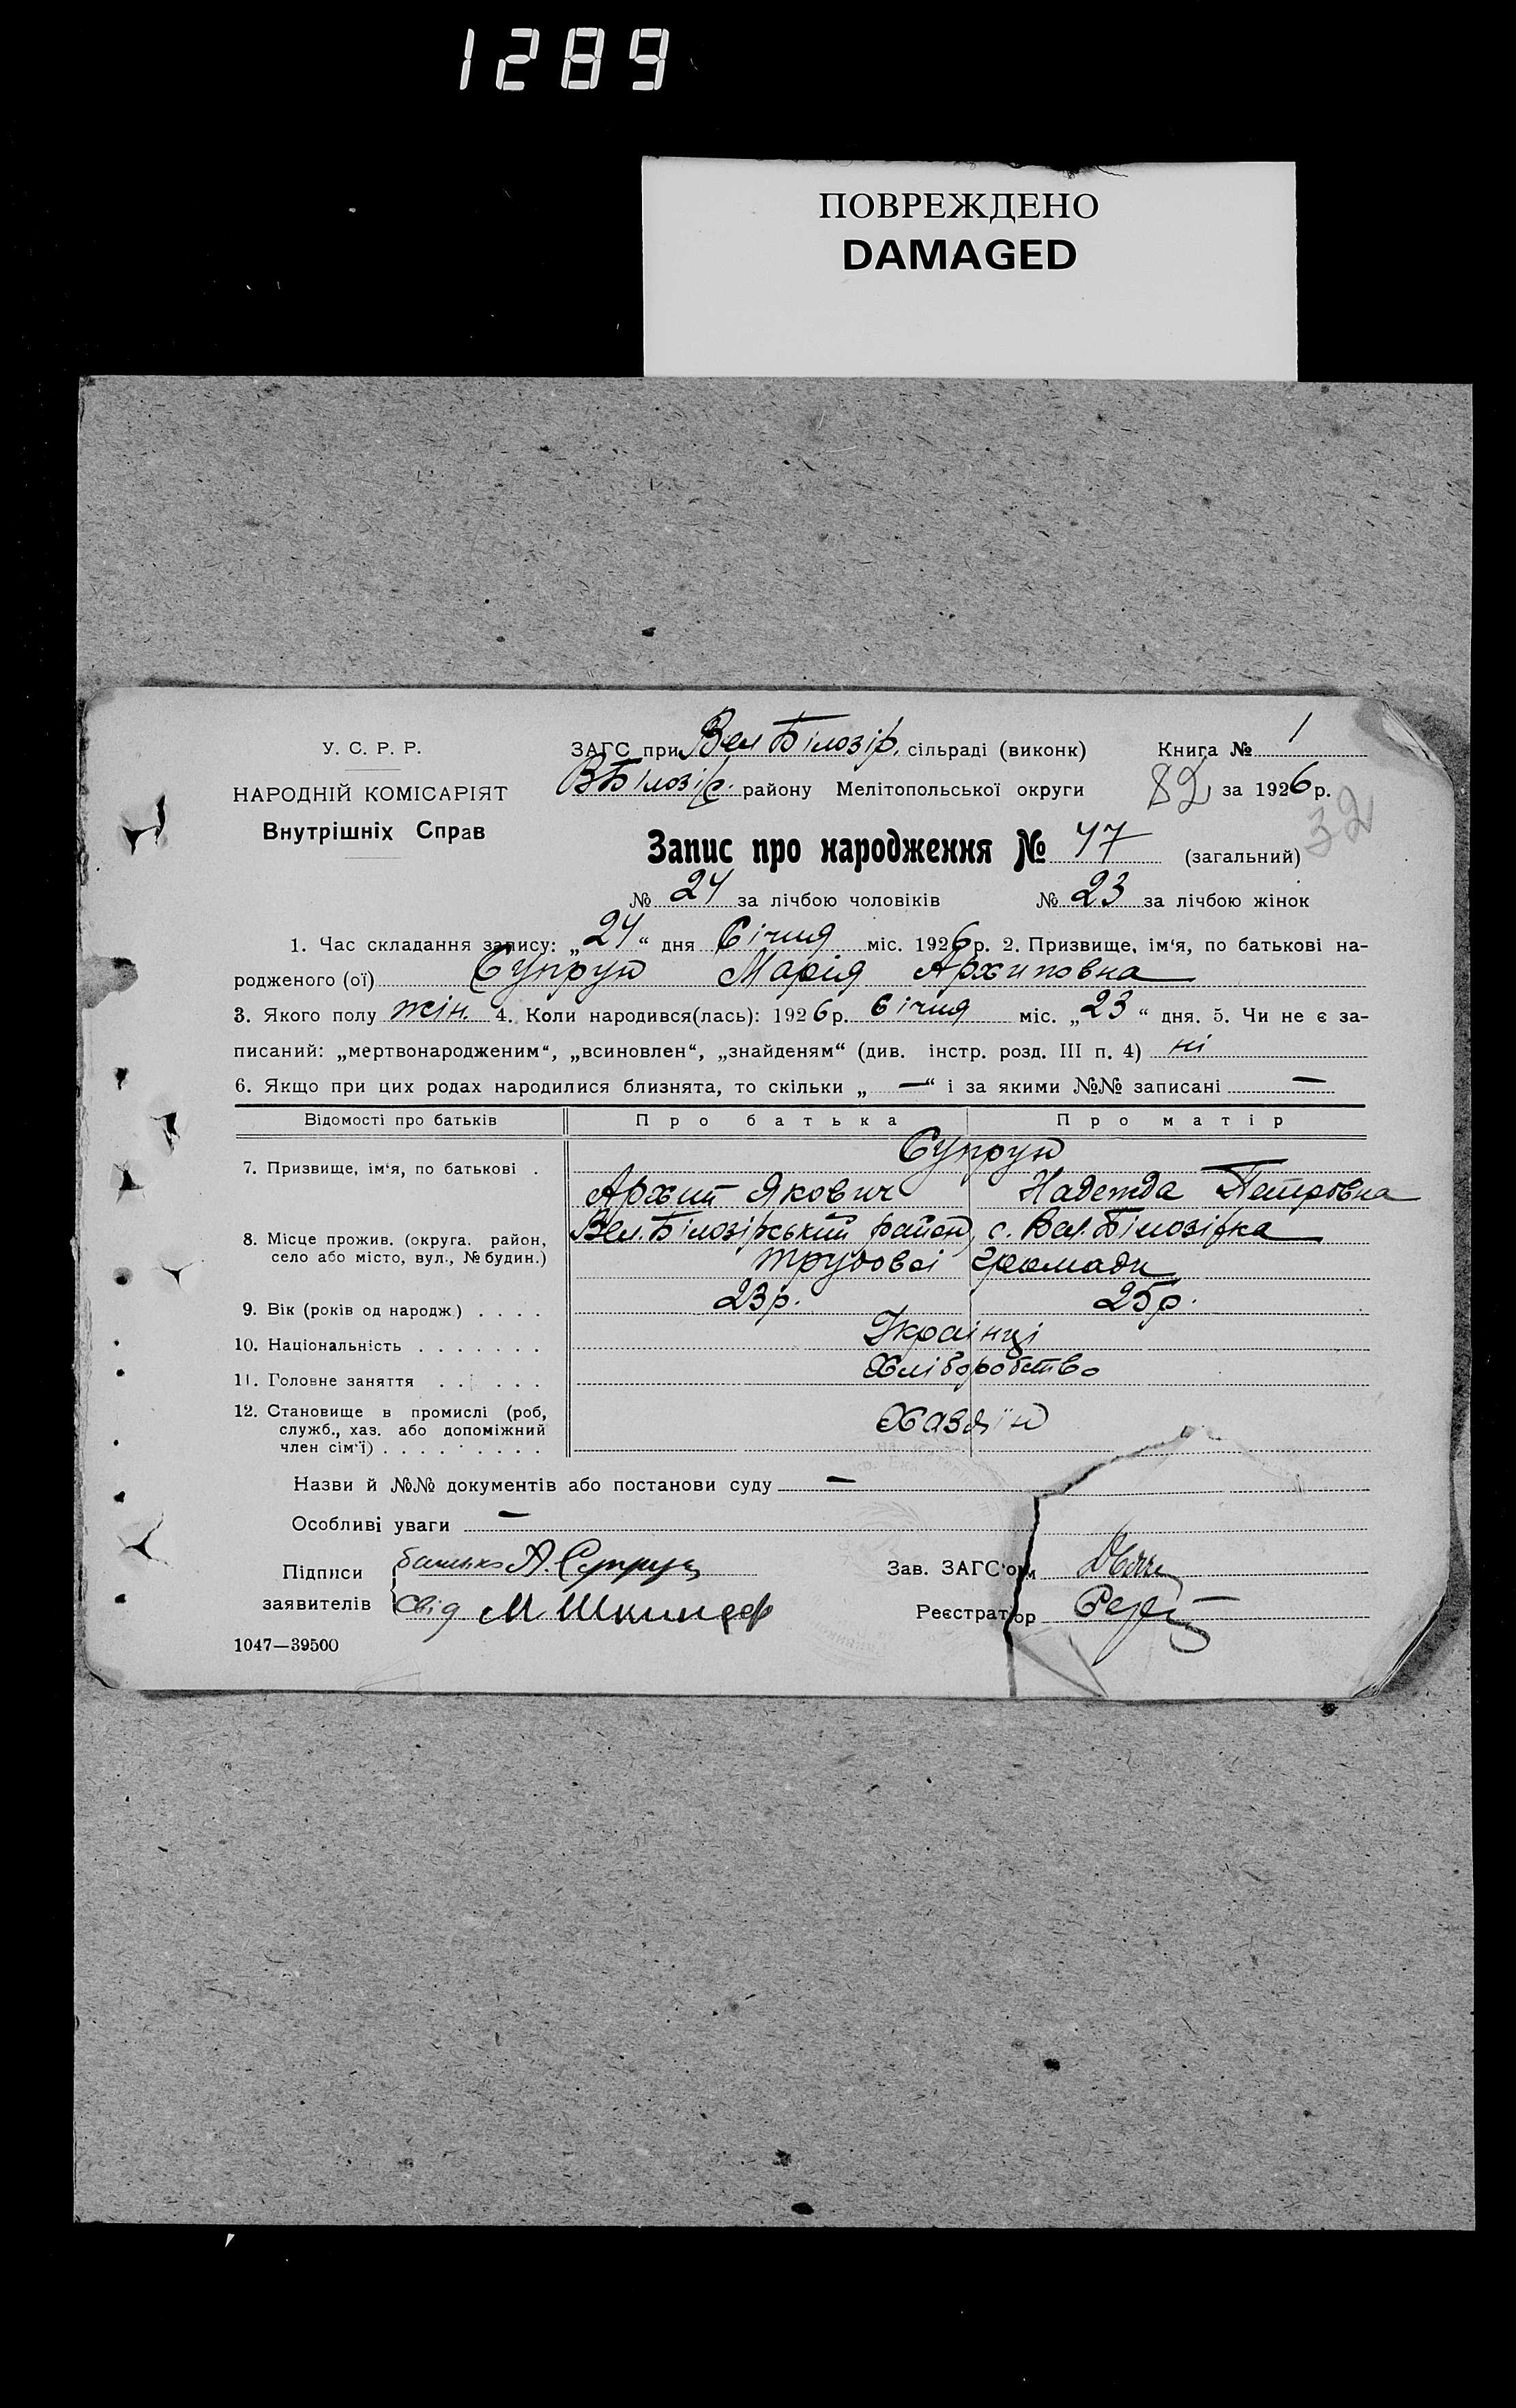 1289
ПОВРЕЖДЕНО
DAMAGED
У. С. Р. Р.
ЗАГС при Вел Білозір. сільраді (виконк) Книга № 1
НАРОДНІЙ КОМІСАРІЯТ
ВБілозір. району Мелітопольської округи 82 за 1926 р.
32
Внутрішніх Справ
Запис про народження № 47 (загальний)
№ 24 за лічбою чоловіків № 23 за лічбою жінок
1. Час складання запису: „24“ дня Січня міс. 1926 р. 2. Призвище, ім‘я, по батькові на-
родженого (ої) Супрун Марія Архиповна
3. Якого полу жін. 4. Коли народився(лась): 1926 р. Січня міс. „23“ дня. 5. Чи не є за-
писаний: „мертвонародженим“, „всиновлен“, „знайденям“ (див. інстр. розд. III п. 4) ні
6. Якщо при цих родах народилися близнята, то скільки „—“ і за якими №№ записані —
Відомості про батьків Про батька Про матір
7. Призвище, ім‘я, по батькові . Супрун
Архип Якович Надежда Петровна
8. Місце прожив. (округа, район, село або місто, вул., № будин.) Вел. Білозірський район, с. Вел. Білозірка
трудової громади
9. Вік (років од народж.) . . . . 23 р. 25 р.
10. Національність . . . . . . . Українці
11. Головне заняття . . . . . Хліборобство
12. Становище в промислі (роб,
служб., хаз. або допоміжний
член сім‘ї) . . . . . . . . . Хазяїн
Назви й №№ документів або постанови суду —
Особливі уваги —
Підписи батько А. Супрун Зав. ЗАГС‘ом
заявителів Свід М. Реєстратор
1047—39500